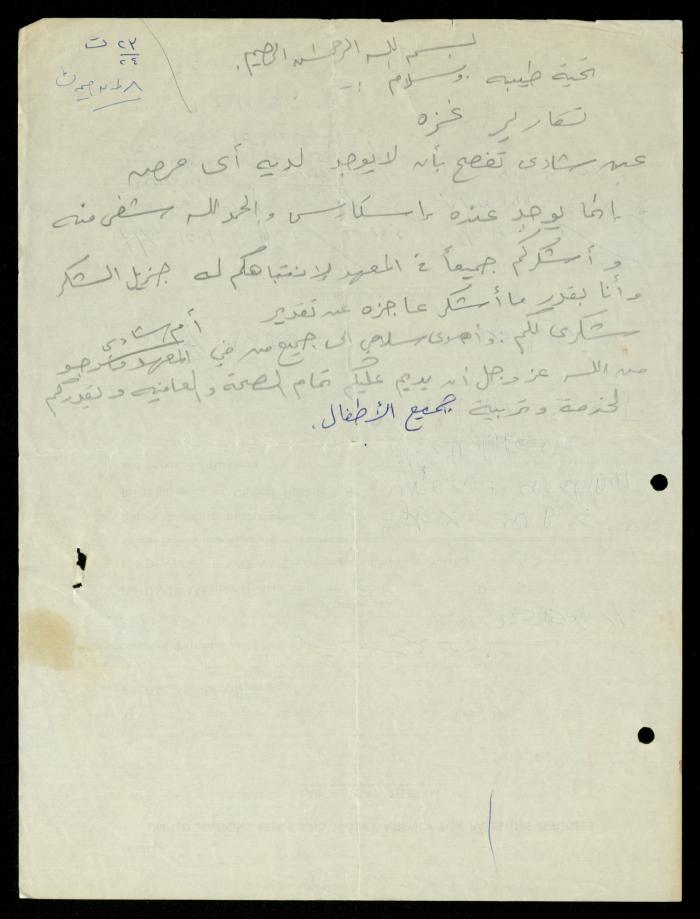 ٢٣ ت
٢٤
بسم الله الرحمن الرحيم.
تحية طيبه وسلام
تقارير غزه
عن شادى تفصح بأن لا يوجد لديه أى مرض
إنما يوجد عنده إسكارس والحمد لله شفى منه
وأشكركم جميعاً في المعهد لإنتباهكم له جزيل الشكر
وأنا بقدر ما أشكر عاجزه عن تقدير
أم شادى
شكرى لكم. وأهدى سلامي الى جميع من في المعهد وأرجو
من الله عز وجل أن يديم عليكم تمام الصحة والعافيه ويقدركم
لخدمة وتربية جميع الأطفال.